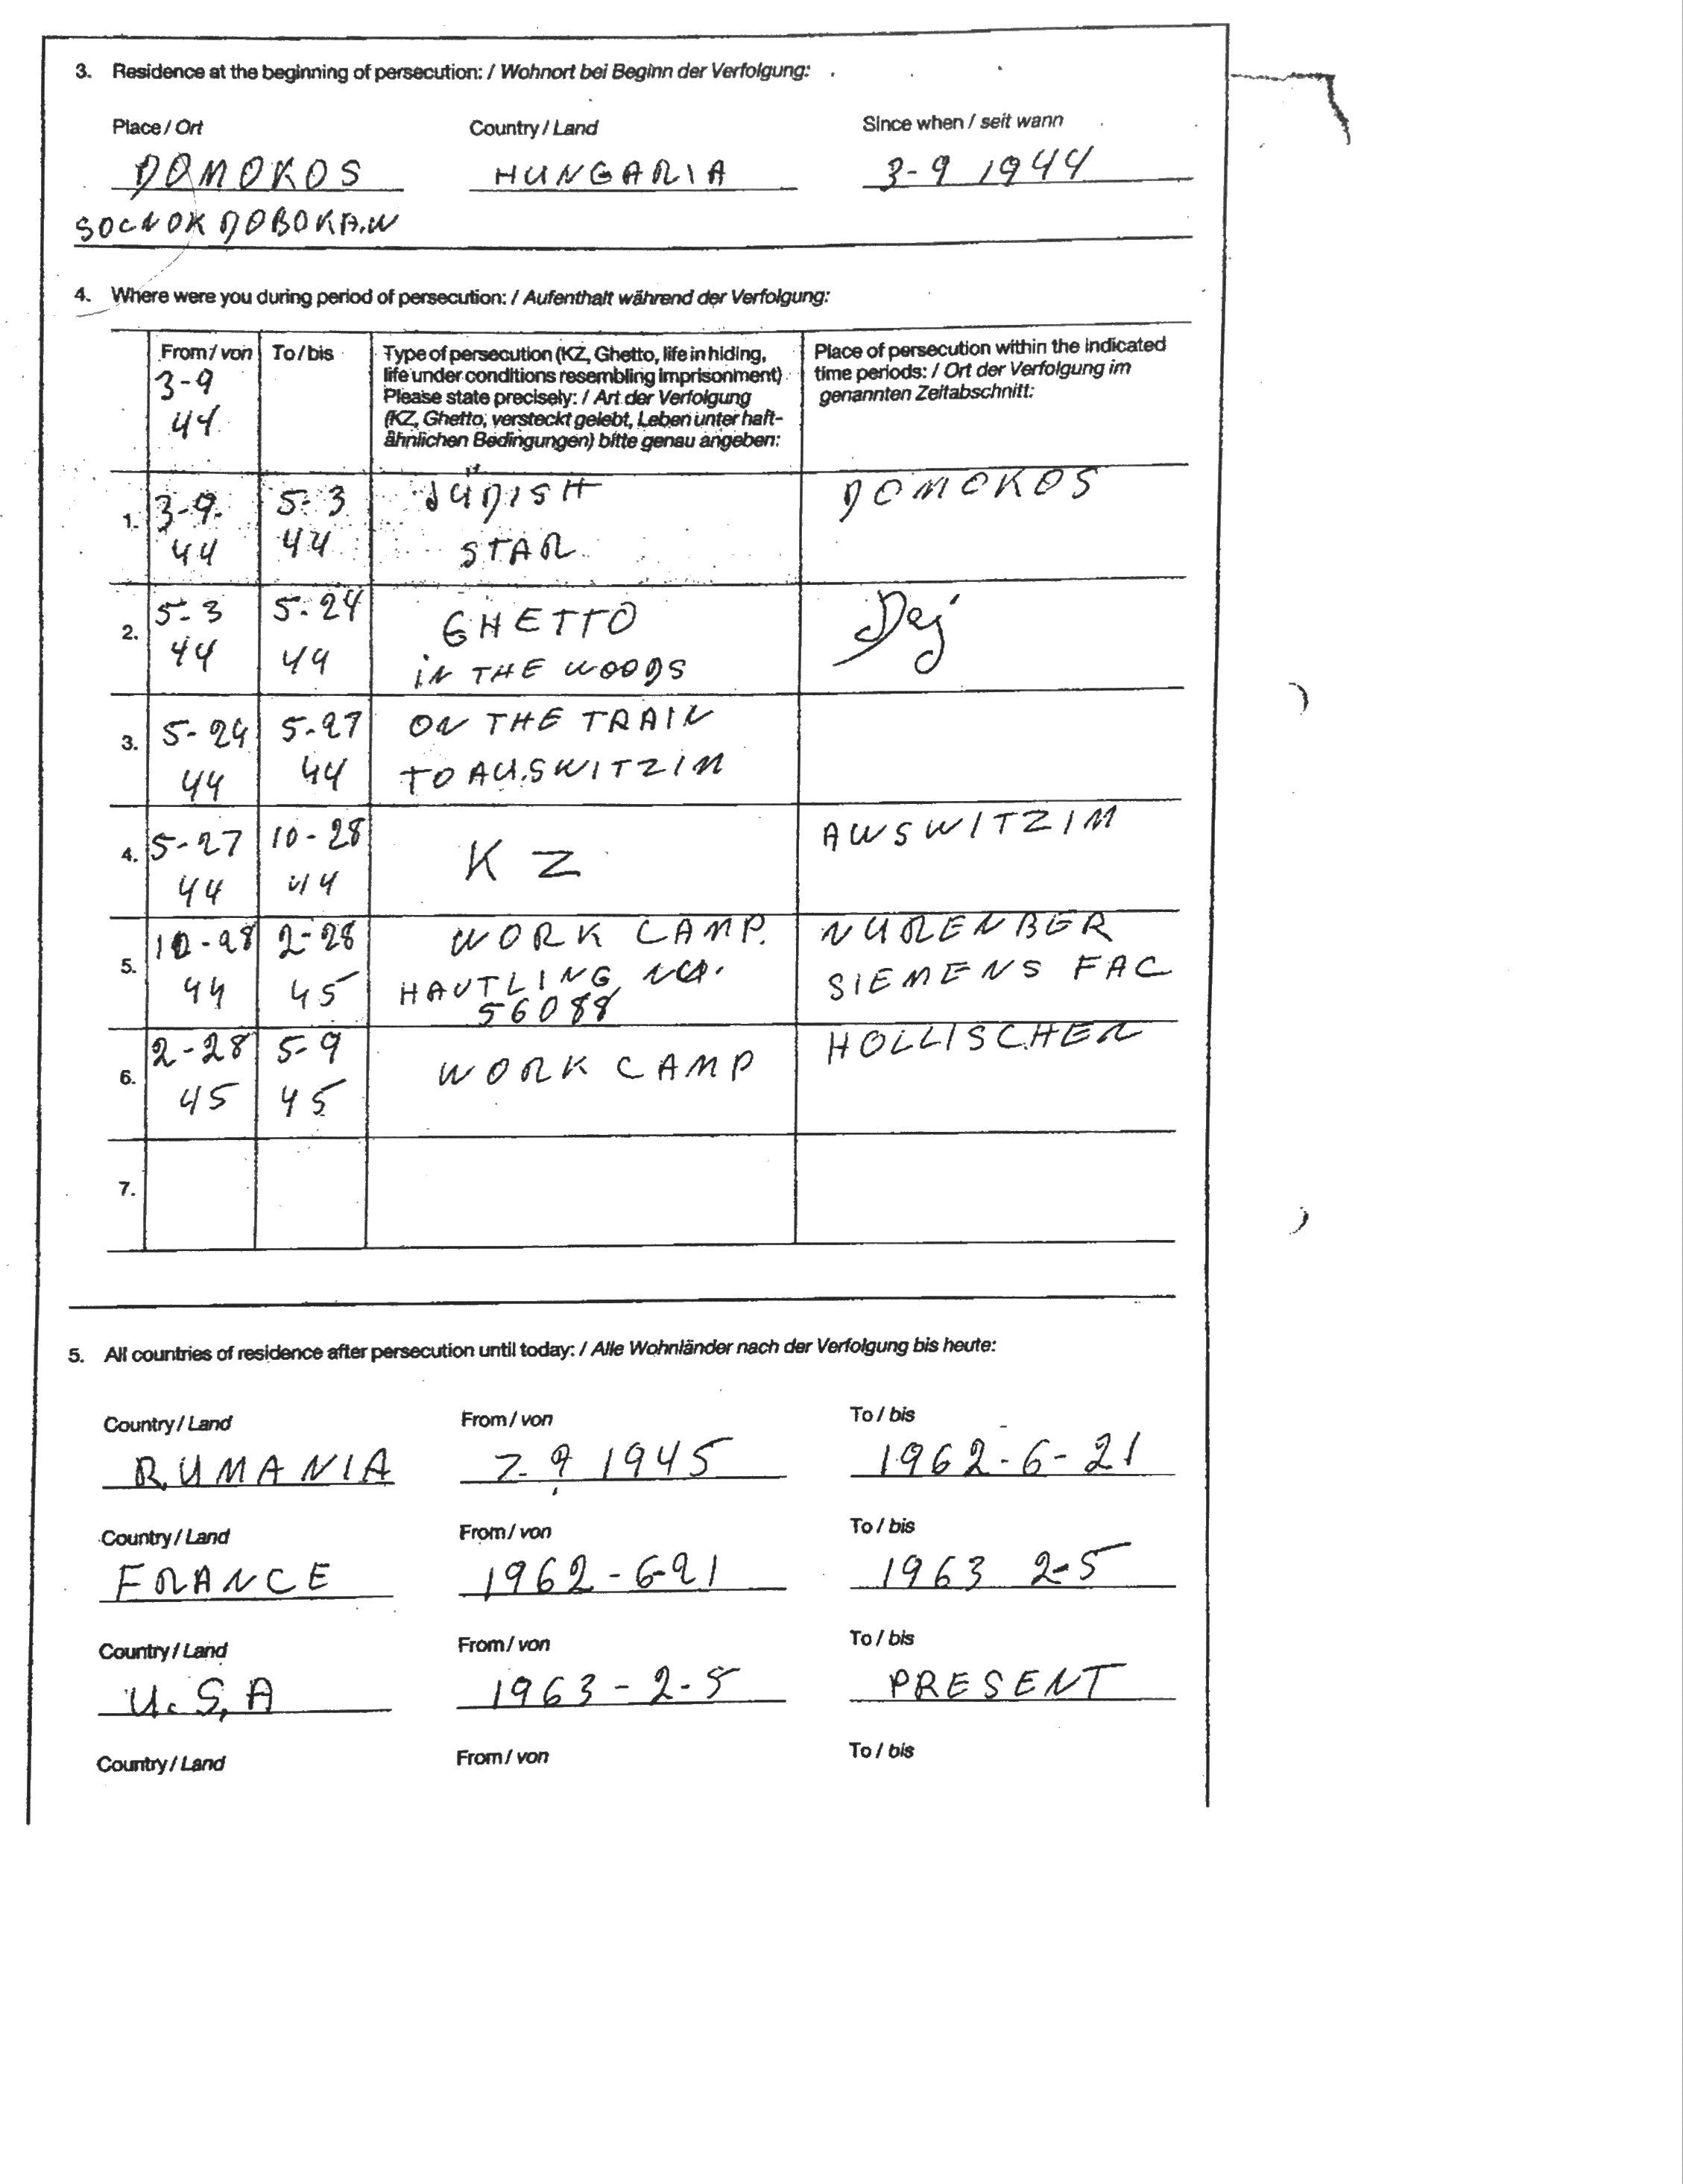 3. Residence at the beginning of persecution: / Wohnort bei Beginn der Verfolgung:
Place / Ort Country / Land Since when / seit wann
DOMOKOS HUNGARIA 3-9 1944
SOCNOK DOBOKA.N
4. Where were you during period of persecution: / Aufenthalt während der Verfolgung:
From / von To / bis Type of persecution (KZ, Ghetto, life in hiding, Place of persecution within the indicated
3-9 life under conditions resembling imprisonment) time periods: / Ort der Verfolgung im
44 Please state precisely: / Art der Verfolgung genannten Zeitabschnitt:
(KZ, Ghetto, versteckt gelebt, Leben unter haft-
ähnlichen Bedingungen) bitte genau angeben:
1. 3-9. 5-3 JUDISH DOMOKOS
44 44 STAR
2. 5-3 5-24 GHETTO Dej
44 44 IN THE WOODS
3. 5-24 5-27 ON THE TRAIN
44 44 TO AU.SWITZIM
4. 5-27 10-28 KZ AWSWITZIM
44 44
5. 10-28 2-28 WORK CAMP. NURENBER
44 45 HAUTLING NO. SIEMENS FAC
56088
6. 2-28 5-9 WORK CAMP HOLLISCHER
45 45
7.
5. All countries of residence after persecution until today: / Alle Wohnländer nach der Verfolgung bis heute:
Country / Land From / von To / bis
RUMANIA 7-9 1945 1962-6-21
Country / Land From / von To / bis
FRANCE 1962-6-21 1963 2-5
Country / Land From / von To / bis
U.S,A 1963-2-5 PRESENT
Country / Land From / von To / bis